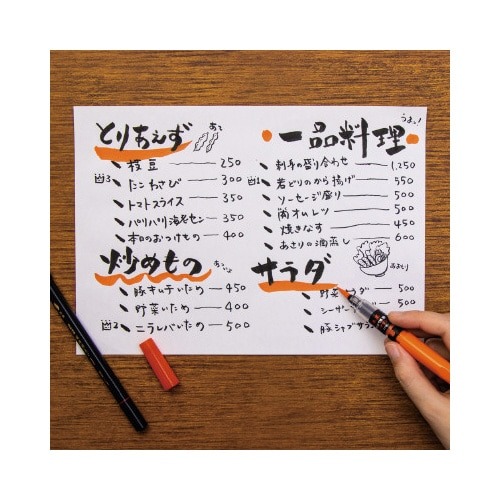 とりあえず
枝豆 250
凸3 たこわさび 300
トマトスライス 350
パリパリ海老セン 350
本日のおつけもの 400
炒めもの
豚キムチいため 450
野菜いため 400
凸2 ニラレバいため 500
うまっ!
一品料理
刺身の盛り合わせ 1,250
凸1 若どりのから揚げ 550
ソーセージ盛り 500
肉オムレツ 500
焼きなす 450
あさりの酒蒸し 600
サラダ
野菜サラダ 500
シーザー 500
豚シャブサラ 500